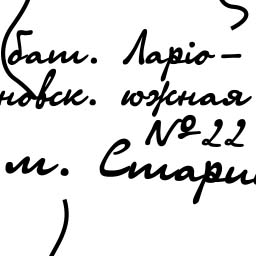 бат. Ларіо-
новск. южная
№ 22
м. Стари